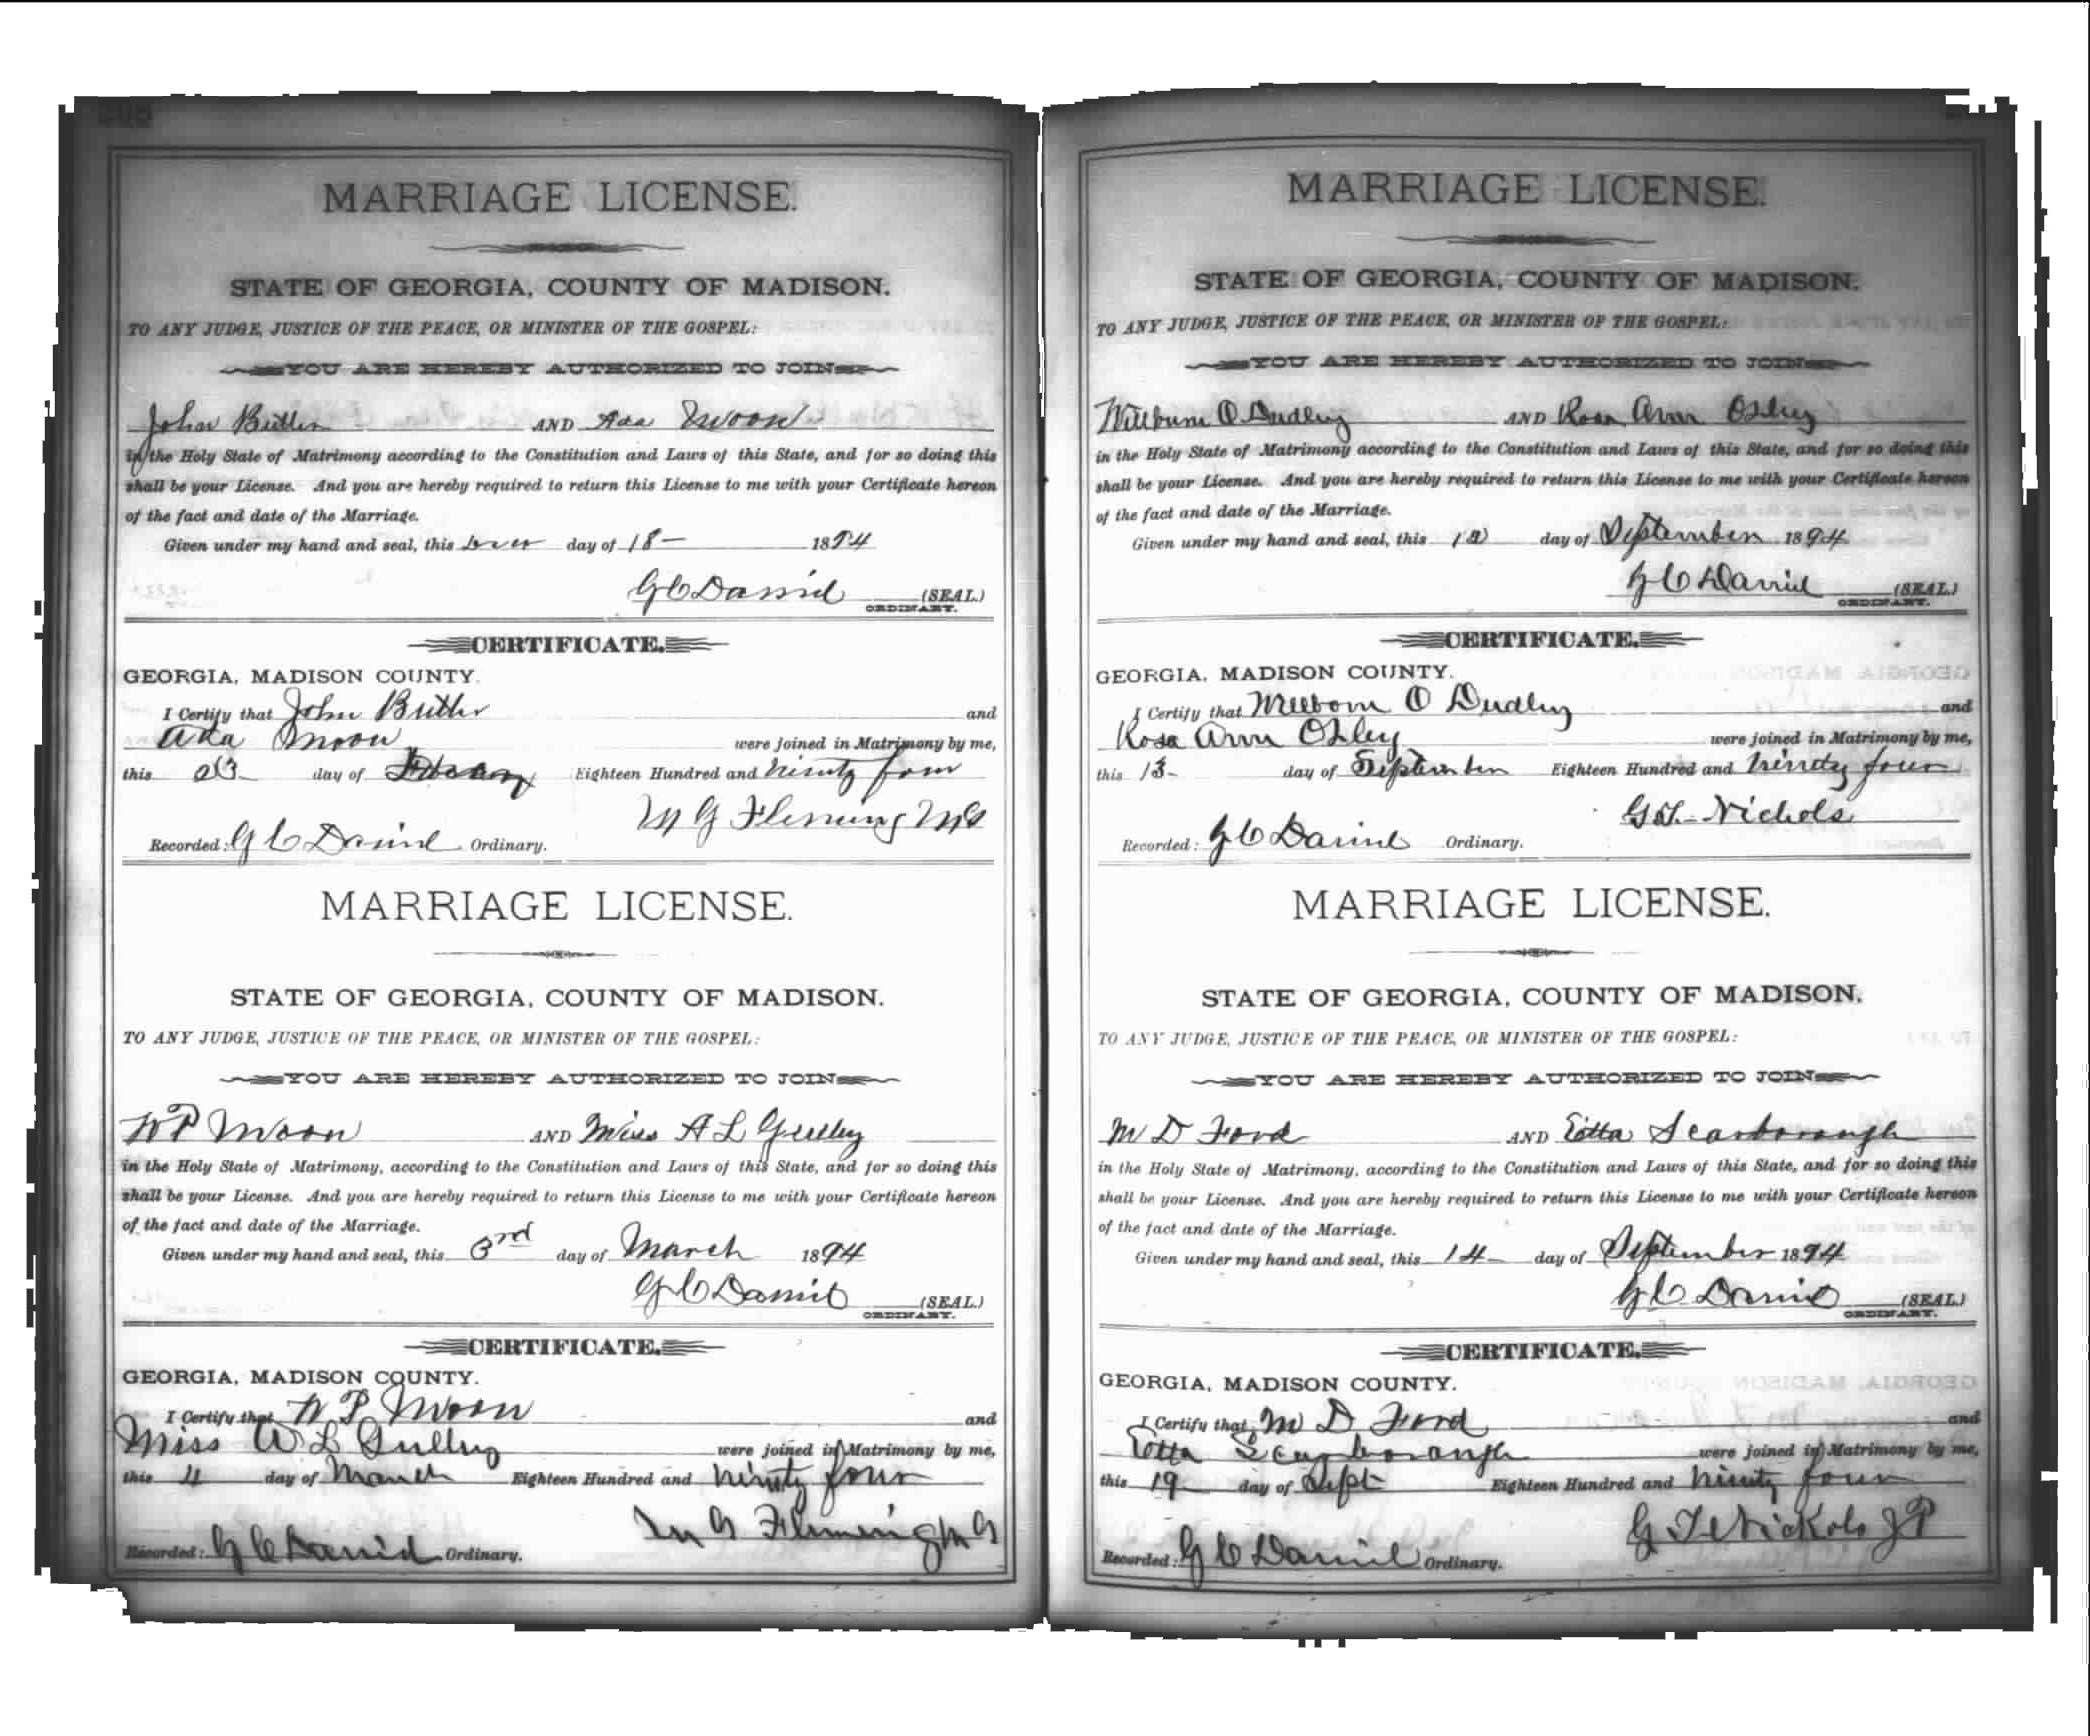 MARRIAGE LICENSE.
STATE OF GEORGIA, COUNTY OF MADISON.
TO ANY JUDGE, JUSTICE OF THE PEACE, OR MINISTER OF THE GOSPEL:
YOU ARE HEREBY AUTHORIZED TO JOIN
John Butler AND Ada Moon
in the Holy State of Matrimony according to the Constitution and Laws of this State, and for so doing this
shall be your License. And you are hereby required to return this License to me with your Certificate hereon
of the fact and date of the Marriage.
Given under my hand and seal, this day of 18- 1894
G C Daniel (SEAL.)
ORDINARY.
CERTIFICATE.
GEORGIA, MADISON COUNTY.
I Certify that John Butler and
Ada Moon were joined in Matrimony by me,
this day of Eighteen Hundred and ninety four
M G Fleming MG
Recorded: G C Daniel Ordinary.
MARRIAGE LICENSE.
STATE OF GEORGIA, COUNTY OF MADISON.
TO ANY JUDGE, JUSTICE OF THE PEACE, OR MINISTER OF THE GOSPEL:
YOU ARE HEREBY AUTHORIZED TO JOIN
W P Moon AND Miss A L Gulley
in the Holy State of Matrimony, according to the Constitution and Laws of this State, and for so doing this
shall be your License. And you are hereby required to return this License to me with your Certificate hereon
of the fact and date of the Marriage.
Given under my hand and seal, this 3rd day of March 1894
G C Daniel (SEAL.)
ORDINARY.
CERTIFICATE.
GEORGIA, MADISON COUNTY.
I Certify that W P Moon and
Miss A L Gulley were joined in Matrimony by me,
this 4 day of March Eighteen Hundred and ninety four
M G Fleming M G
Recorded: G C Daniel Ordinary.
MARRIAGE LICENSE.
STATE OF GEORGIA, COUNTY OF MADISON.
TO ANY JUDGE, JUSTICE OF THE PEACE, OR MINISTER OF THE GOSPEL:
YOU ARE HEREBY AUTHORIZED TO JOIN
Willburn O Dudley AND Rosa Ann Oxley
in the Holy State of Matrimony according to the Constitution and Laws of this State, and for so doing this
shall be your License. And you are hereby required to return this License to me with your Certificate hereon
of the fact and date of the Marriage.
Given under my hand and seal, this day of September 1894
G C Daniel (SEAL.)
ORDINARY.
CERTIFICATE.
GEORGIA, MADISON COUNTY.
I Certify that Welborn O Dudley and
Rosa Ann Oxley were joined in Matrimony by me,
this 13- day of September Eighteen Hundred and ninety four
G T Nichols
Recorded: G C Daniel Ordinary.
MARRIAGE LICENSE.
STATE OF GEORGIA, COUNTY OF MADISON.
TO ANY JUDGE, JUSTICE OF THE PEACE, OR MINISTER OF THE GOSPEL:
YOU ARE HEREBY AUTHORIZED TO JOIN
M D Ford AND Etta Scarborough
in the Holy State of Matrimony, according to the Constitution and Laws of this State, and for so doing this
shall be your License. And you are hereby required to return this License to me with your Certificate hereon
of the fact and date of the Marriage.
Given under my hand and seal, this 14- day of September 1894
G C Daniel (SEAL.)
ORDINARY.
CERTIFICATE.
GEORGIA, MADISON COUNTY.
I Certify that M D Ford and
Etta Scarborough were joined in Matrimony by me,
this 19 day of Sept Eighteen Hundred and ninety four
G T Nickols J P
Recorded: G C Daniel Ordinary.